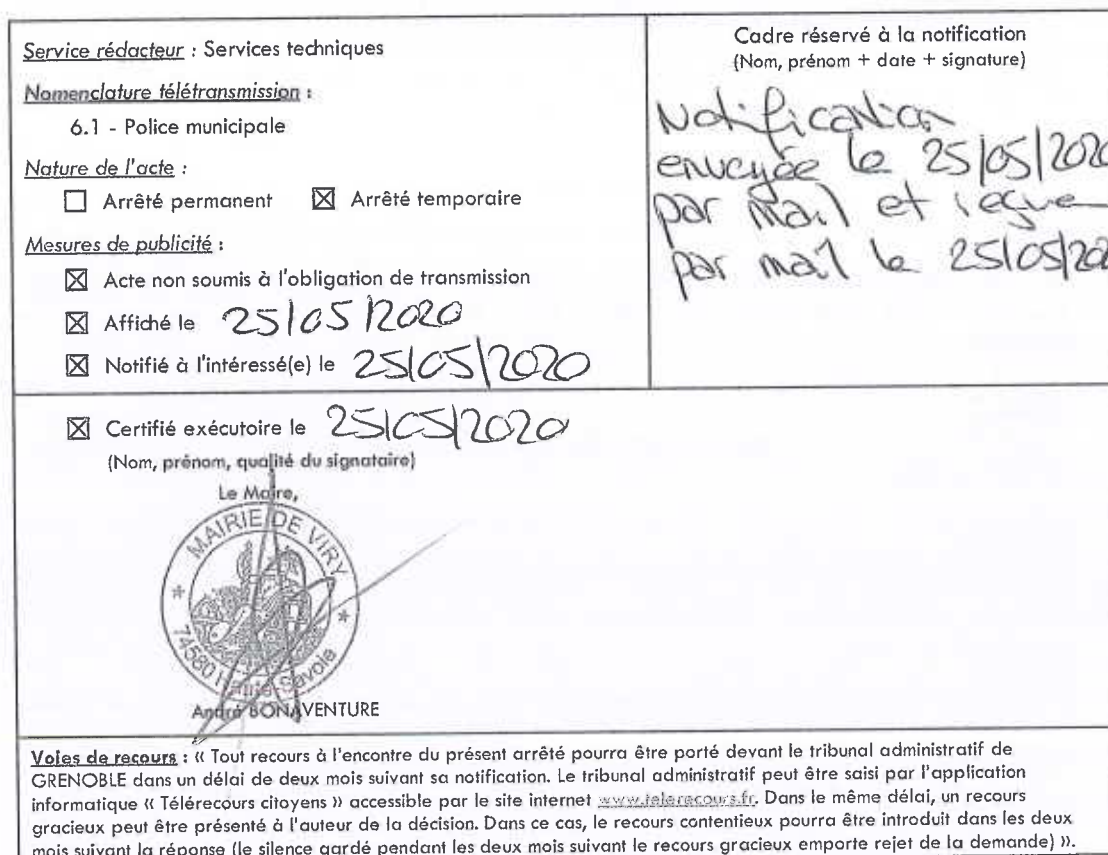 Service rédacteur : Services techniques
Nomenclature télétransmission :
6.1 - Police municipale
Nature de l'acte :
☐ Arrêté permanent ☒ Arrêté temporaire
Mesures de publicité :
☒ Acte non soumis à l'obligation de transmission
☒ Affiché le 25/05/2020
☒ Notifié à l'intéressé(e) le 25/05/2020
Cadre réservé à la notification
(Nom, prénom + date + signature)
Notification
envoyée le 25/05/2020
par mail et reçue
par mail le 25/05/202
☒ Certifié exécutoire le 25/05/2020
(Nom, prénom, qualité du signataire)
Le Maire,
MAIRIE DE VIRY
74580 Haute-Savoie
André BONAVENTURE
Voies de recours : « Tout recours à l'encontre du présent arrêté pourra être porté devant le tribunal administratif de
GRENOBLE dans un délai de deux mois suivant sa notification. Le tribunal administratif peut être saisi par l'application
informatique « Télérecours citoyens » accessible par le site internet www.telerecours.fr. Dans le même délai, un recours
gracieux peut être présenté à l'auteur de la décision. Dans ce cas, le recours contentieux pourra être introduit dans les deux
mois suivant la réponse (le silence gardé pendant les deux mois suivant le recours gracieux emporte rejet de la demande) ».